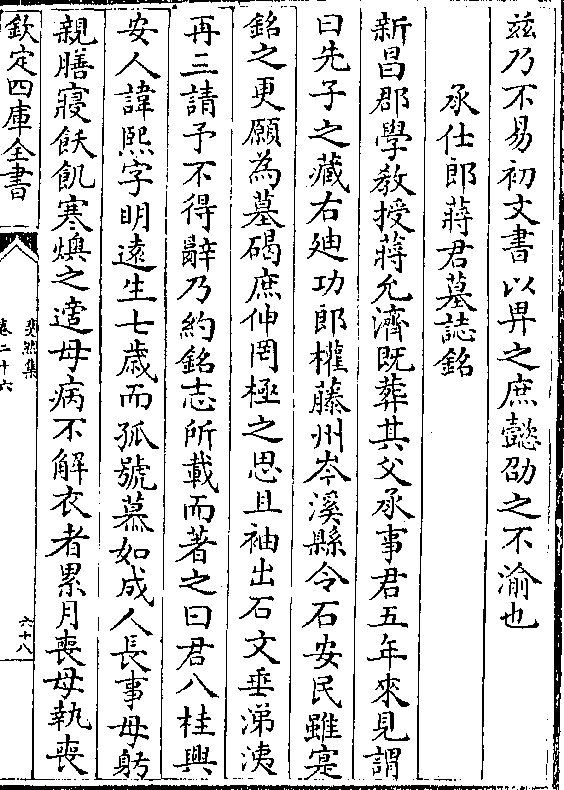 茲乃不易初文書以畀之庶懿劭之不渝也
承仕郎蔣君墓誌銘
新昌郡學教授蔣允濟既葬其父承事君五年來見謂
曰先子之藏右迪功郎權藤州岑溪縣令石安民雖寔
銘之更願為墓碣庶伸罔極之思且袖出石文垂涕洟
再三請予不得辭乃約銘志所載而著之曰君八桂興
安人諱熙字明遠生七歲而孤號慕如成人長事母躬
親膳寢飫飢寒燠之適母病不解衣者累月喪母執喪
欽定四庫全書
斐然集
卷二十六
六十八